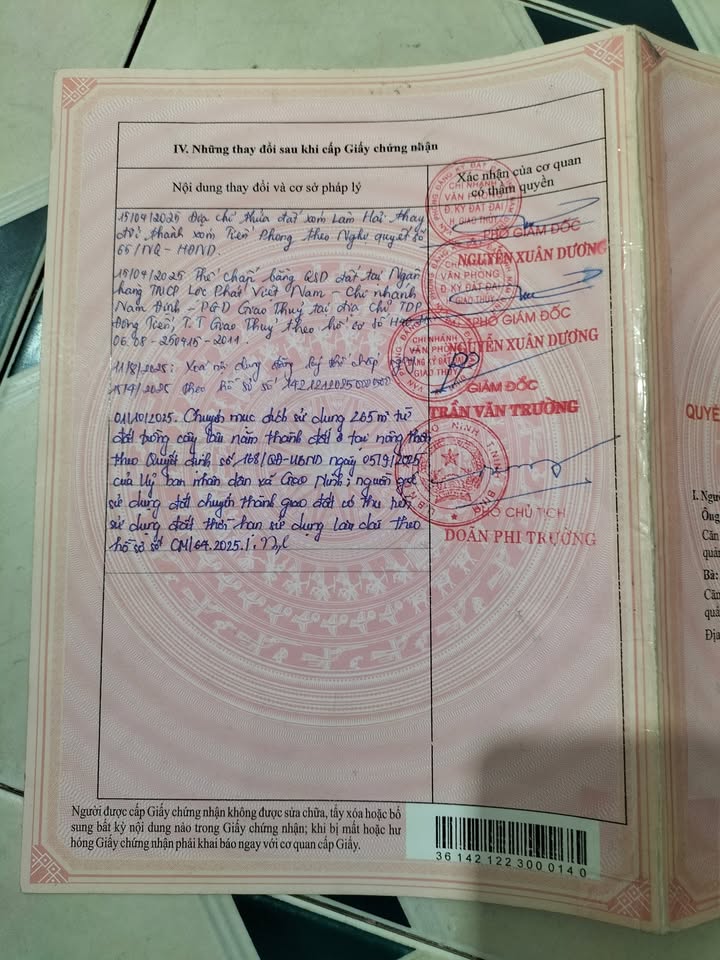 IV. Những thay đổi sau khi cấp Giấy chứng nhận
Nội dung thay đổi và cơ sở pháp lý
Xác nhận của cơ quan
có thẩm quyền
15/04/2025 Địa chỉ thửa đất xóm Lam Hải thay
đổi thành xóm Tiền Phong theo Nghị quyết số
66/NQ-HĐND.
CHI NHÁNH
VĂN PHÒNG
Đ.KÝ ĐẤT ĐAI
H. GIAO THỦY
PHÓ GIÁM ĐỐC
NGUYỄN XUÂN DƯƠNG
15/04/2025 Thế chấp bằng QSD đất tại Ngân
hàng TMCP Lộc Phát Việt Nam - Chi nhánh
Nam Định - PGD Giao Thủy tại địa chỉ TDP
Đông Tiến, T.T Giao Thủy theo hồ sơ số
06.05-250415-2011.
VĂN PHÒNG
Đ.KÝ ĐẤT ĐAI
GIAO THỦY
PHÓ GIÁM ĐỐC
NGUYỄN XUÂN DƯƠNG
11/8/2025: Xóa nội dung đăng ký thế chấp ngày
15/4/2025 theo hồ sơ số
CHI NHÁNH
VĂN PHÒNG
ĐĂNG KÝ ĐẤT ĐAI
GIAO THỦY
GIÁM ĐỐC
TRẦN VĂN TRƯỜNG
01/10/2025. Chuyển mục đích sử dụng 265 m² từ
đất trồng cây lâu năm thành đất ở tại nông thôn
theo Quyết định số 168/QĐ-UBND ngày 05/9/2025
của Uỷ ban nhân dân xã Giao Ninh; nguồn gốc
sử dụng đất chuyển thành giao đất có thu tiền
sử dụng đất thời hạn sử dụng lâu dài theo
hồ sơ số CM/64.2025./.
PHÓ CHỦ TỊCH
DOÃN PHI TRƯỜNG
Người được cấp Giấy chứng nhận không được sửa chữa, tẩy xóa hoặc bổ
sung bất kỳ nội dung nào trong Giấy chứng nhận; khi bị mất hoặc hư
hỏng Giấy chứng nhận phải khai báo ngay với cơ quan cấp Giấy.
36 142 122 300 014 0
QUYỀ
I. Ngư
Ông
Căn
quản
Bà:
Căn
quả
Địa